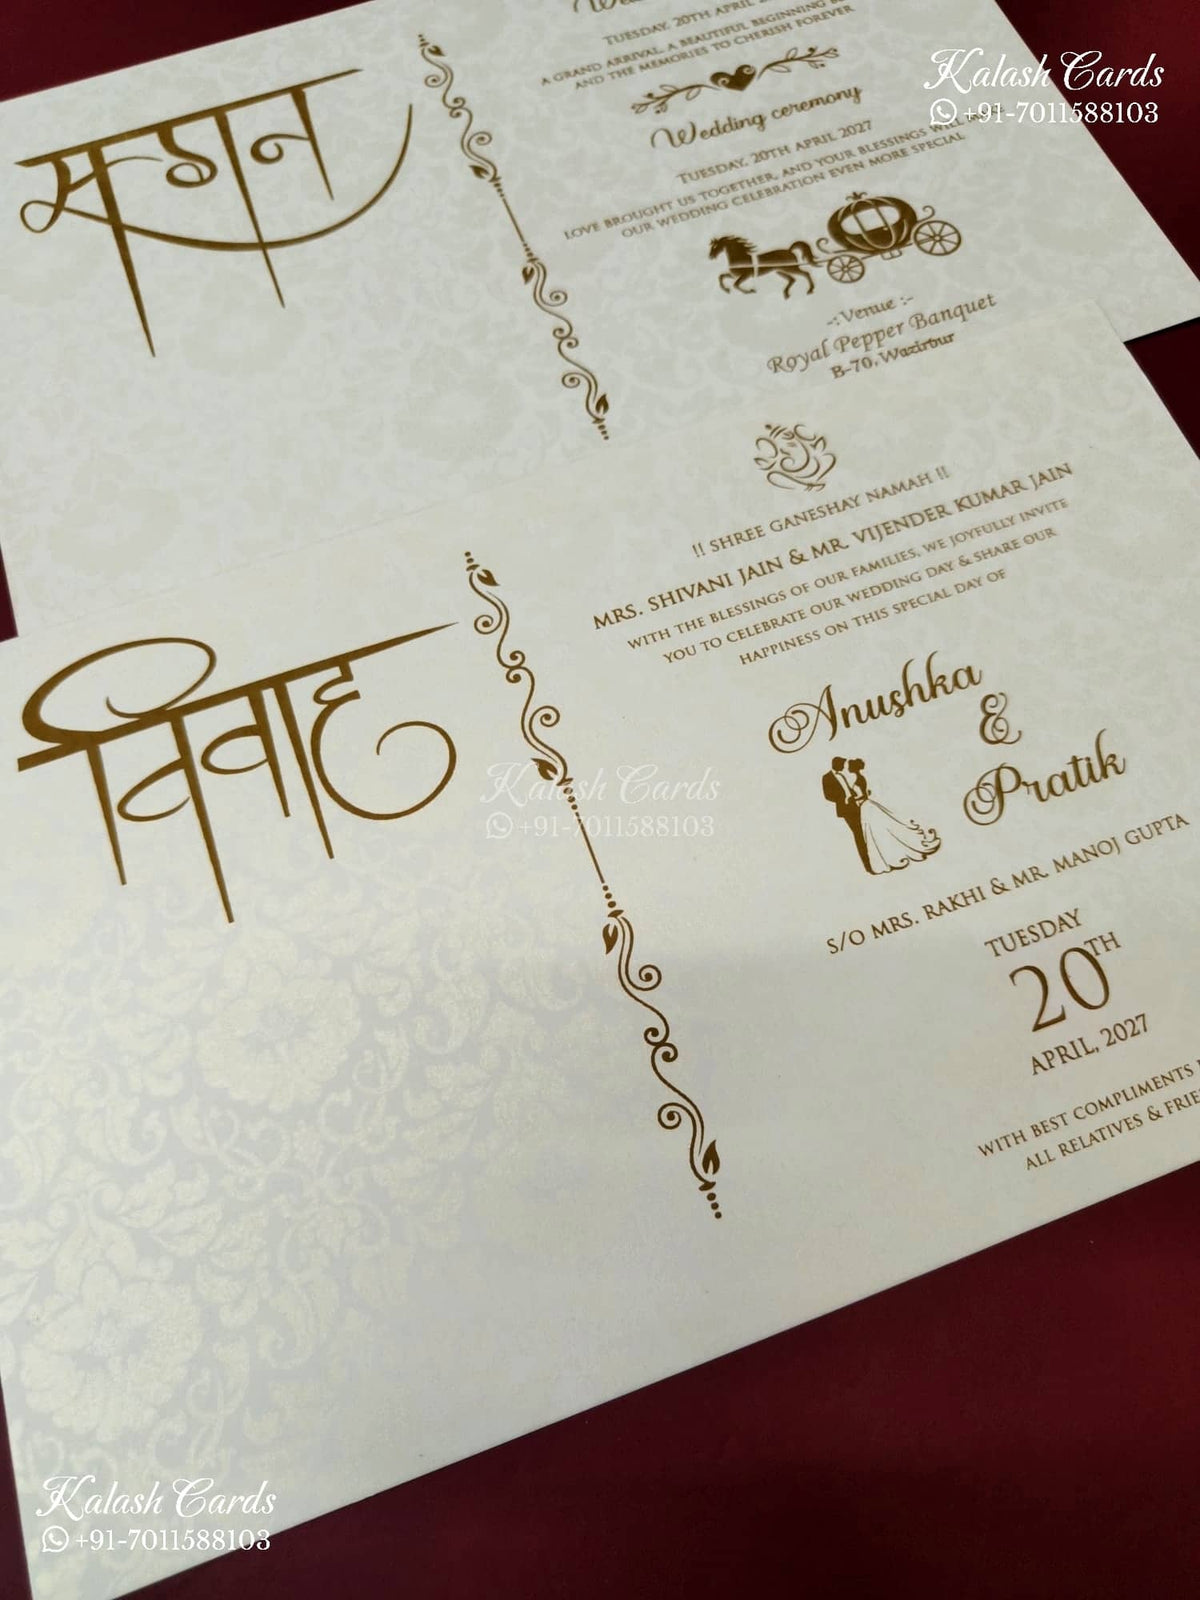 Kalash Cards
+91-7011588103
सगन
Wedding
TUESDAY, 20TH APRIL
A GRAND ARRIVAL, A BEAUTIFUL BEGINNING
AND THE MEMORIES TO CHERISH FOREVER
Wedding ceremony
TUESDAY, 20TH APRIL 2027
LOVE BROUGHT US TOGETHER, AND YOUR BLESSINGS WILL MAKE
OUR WEDDING CELEBRATION EVEN MORE SPECIAL
-: Venue :-
Royal Pepper Banquet
B-70, Wazirpur
विवाह
!! SHREE GANESHAY NAMAH !!
MRS. SHIVANI JAIN & MR. VIJENDER KUMAR JAIN
WITH THE BLESSINGS OF OUR FAMILIES, WE JOYFULLY INVITE
YOU TO CELEBRATE OUR WEDDING DAY & SHARE OUR
HAPPINESS ON THIS SPECIAL DAY OF
Anushka
&
Pratik
S/O MRS. RAKHI & MR. MANOJ GUPTA
TUESDAY
20TH
APRIL, 2027
WITH BEST COMPLIMENTS
ALL RELATIVES &
Kalash Cards
+91-7011588103
Kalash Cards
+91-7011588103